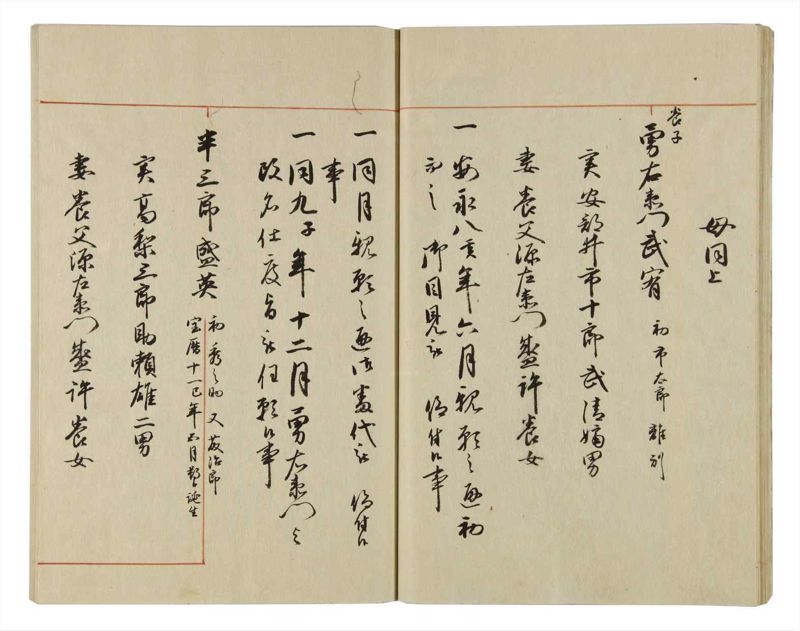 母同上
養子
勇右衛門武宥 初市太郎 離別
実安部井市十郎武清嫡男
妻養父源左衛門盛許養女
一安永八亥年六月親願之通初
而之御目見被 仰付候事
一同月親願之通御番代被 仰付候
事
一同九子年十二月勇右衛門と
改名仕度旨被任願候事
半三郎盛英 初秀之助 又茂治郎
宝暦十一巳年五月 誕生
実高梨三郎助頼雄二男
妻養父源左衛門盛許養女